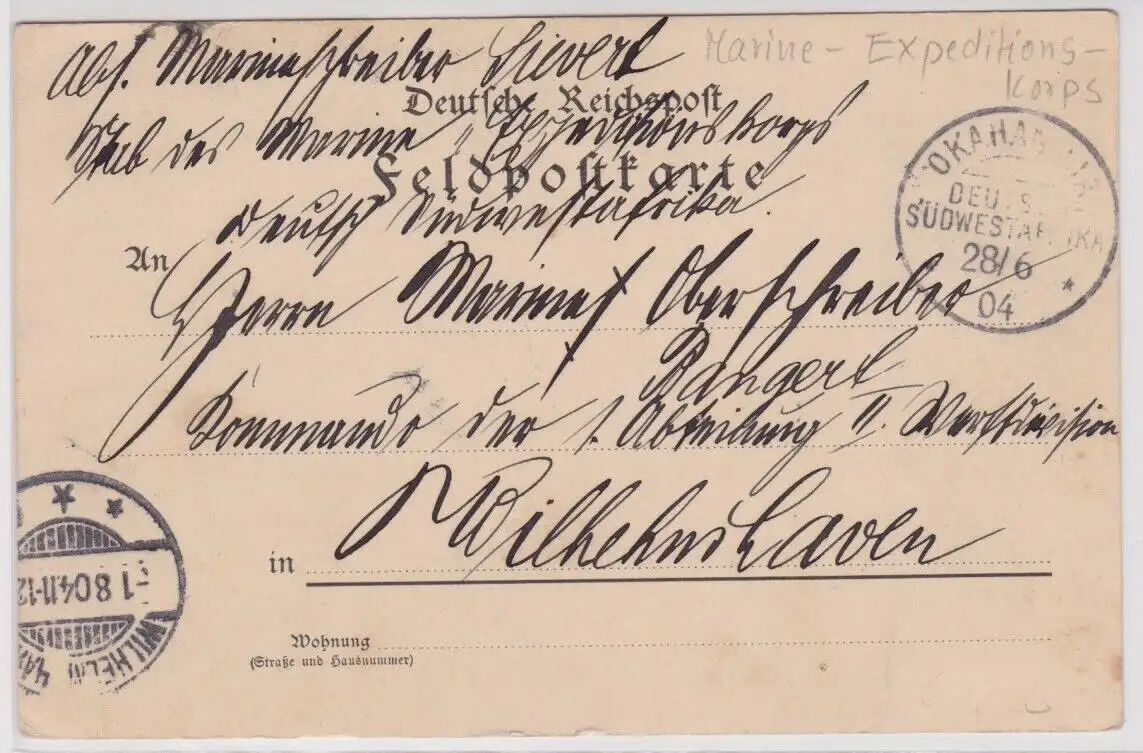 Abs. Marineschreiber Sievert
Marine - Expeditions-
Korps
Deutsche Reichspost
Stab des Marine Expeditionskorps
Feldpostkarte
Deutsch Südwestafrika.
OKAHAN
DEUTS
SÜDWESTAFRIKA
28/6
04
An
Herrn Marine Oberschreiber
Bangert
Kommando der 1. Abteilung II. Werftdivision
in Wilhelmshaven
-1 8 04 11-12
WILHELM
HAV
Wohnung
(Straße und Hausnummer)